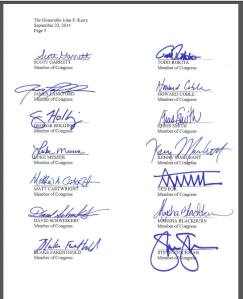 The Honorable John F. Kerry
Scott Garrett
SCOTT GARRETT TODD ROKITA
Member of Congress Member of Congress
Howard Coble
JAMES LANKFORD HOWARD COBLE
Member of Congress Member of Congress
GEORGE HOLDING CHRIS SMITH
Member of Congress Member of Congress
Luke Messer Kenny Marchant
LUKE MESSER KENNY MARCHANT
Member of Congress Member of Congress
MATT CARTWRIGHT TED POE
Member of Congress Member of Congress
Marsha Blackburn
DAVID SCHWEIKERT MARSHA BLACKBURN
Member of Congress Member of Congress
Blake Farenthold
BLAKE FARENTHOLD STEVE
Member of Congress Member of Congress